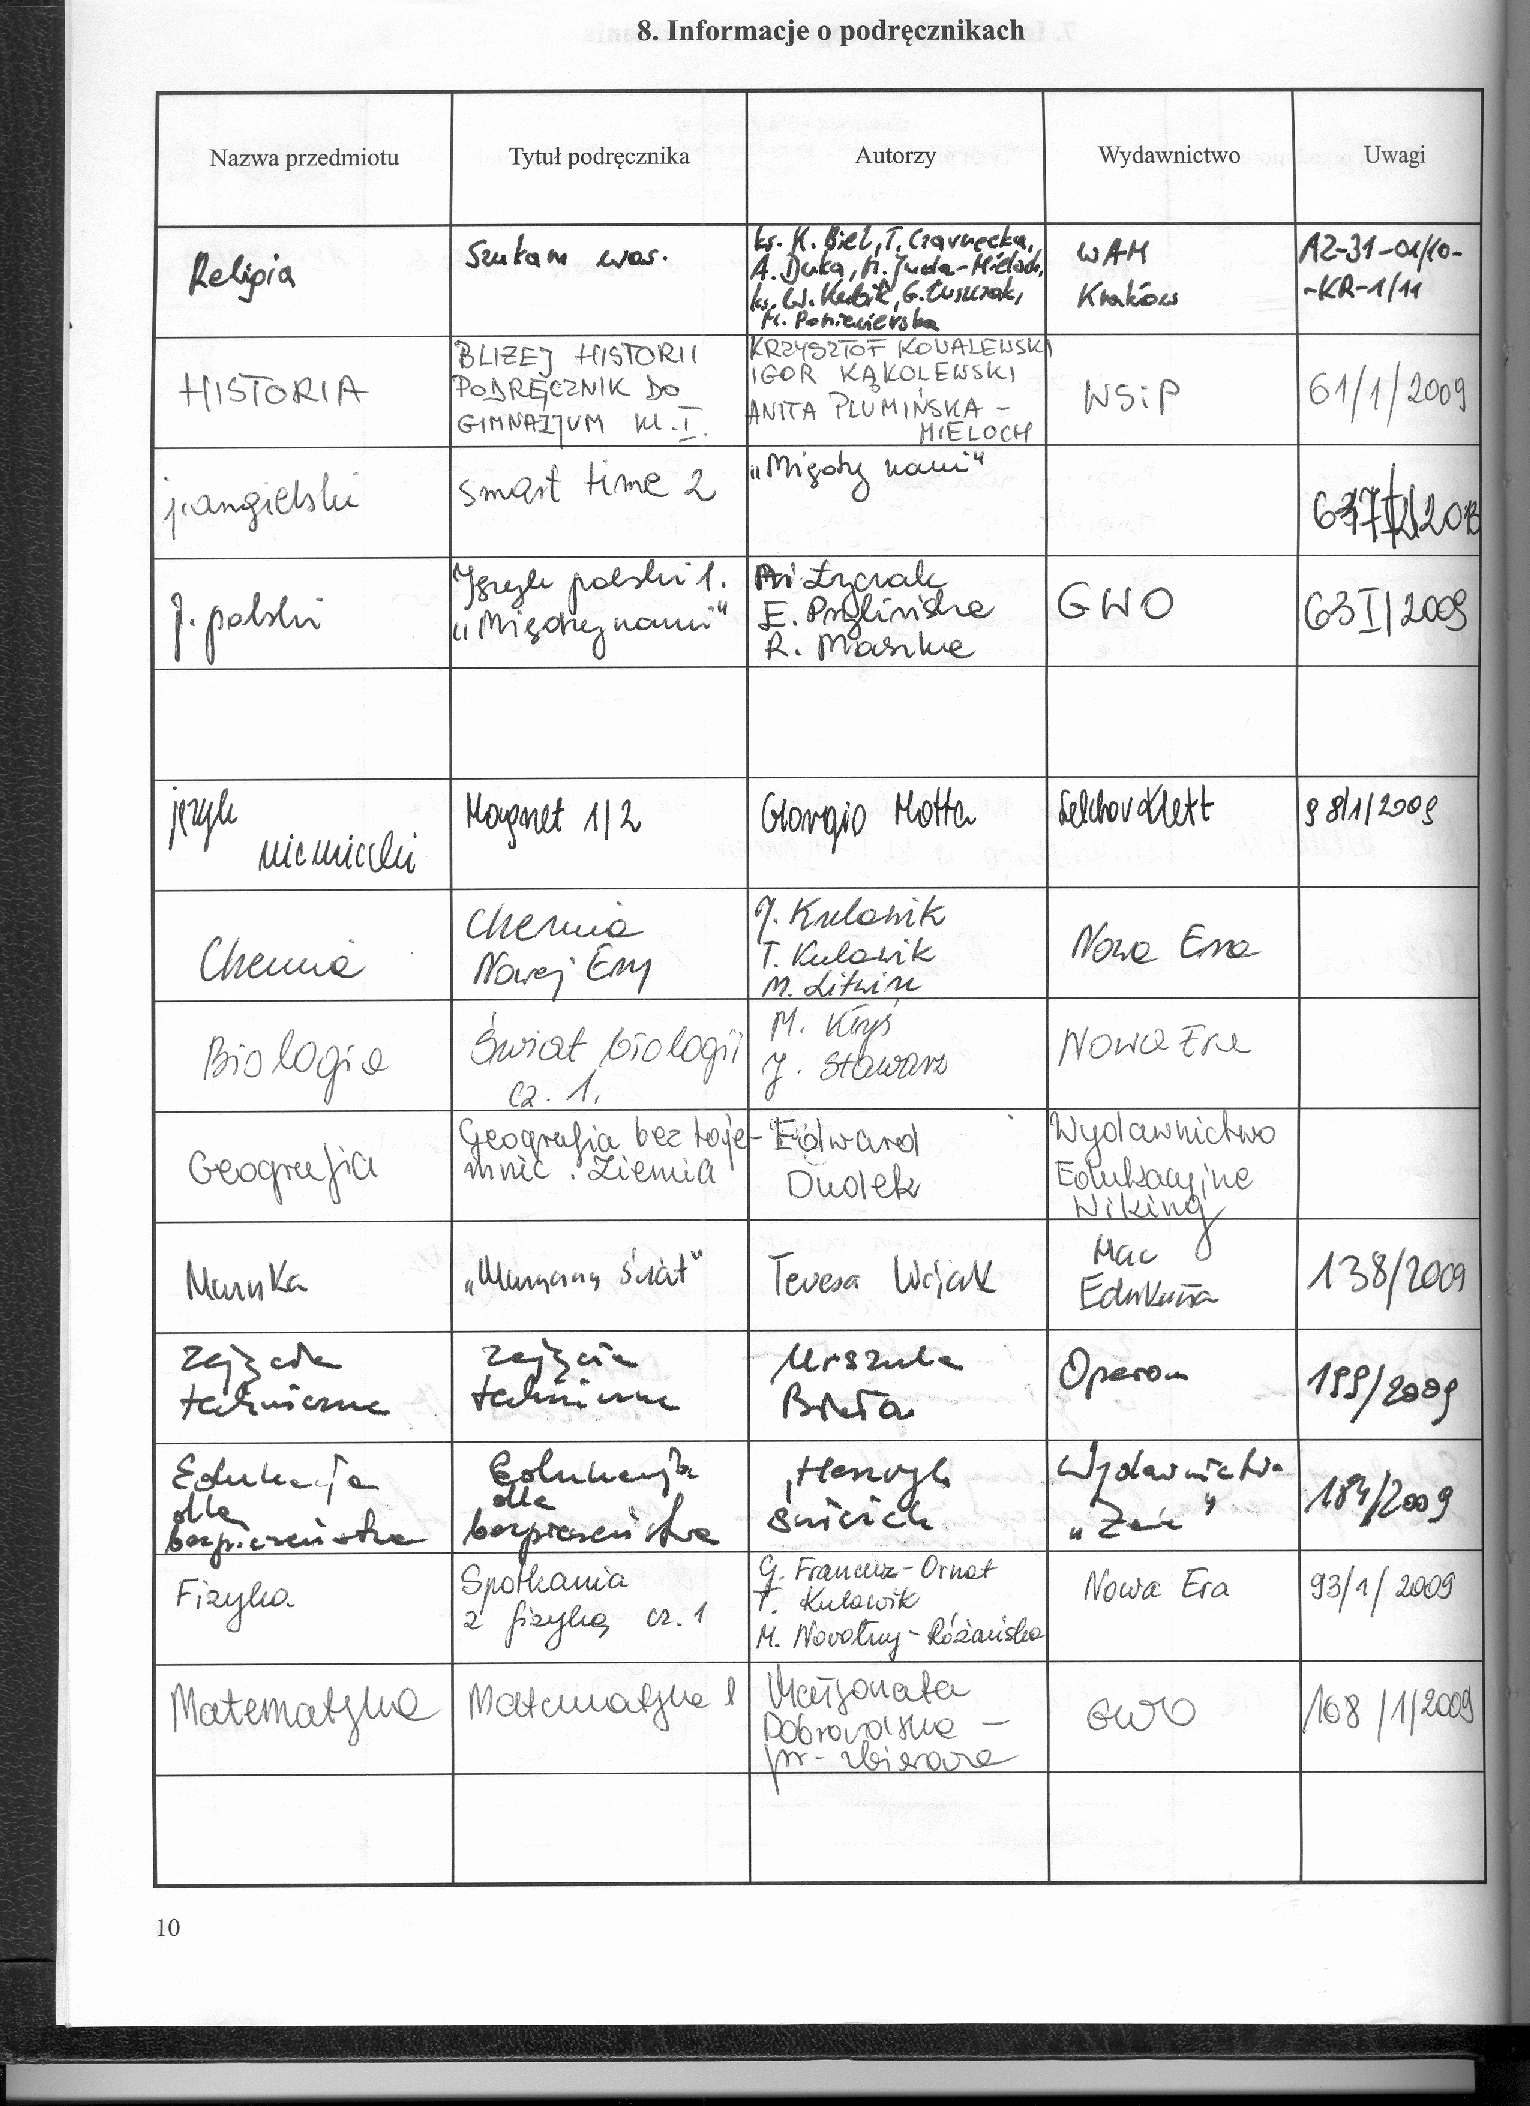 8. Informacje o podręcznikach
Nazwa przedmiotu
Tytuł podręcznika
Autorzy
Wydawnictwo
Uwagi
Religia
Szukam was.
ks. K. Biel, T. Czarnecka,
A. Duka, M. Juda-Mieloch,
ks. W. Kubik, G. Łuszczak,
M. Poniewierska
WAM
Kraków
AZ-31-01/10-
-KR-1/11
HISTORIA
BLIŻEJ HISTORII
PODRĘCZNIK DO
GIMNAZJUM KL. I.
KRZYSZTOF KOWALEWSKI
IGOR KĄKOLEWSKI
ANITA PLUMIŃSKA -
MIELOCH
WSiP
61/1/2009
j. angielski
Smart time 2
„Między nami"
J. polski
Język polski 1.
„Między nami"
Łuczak
E. Prylińska
R. Maszka
GWO
63 I/2009
język
niemiecki
Magnet 1/2
Giorgio Motta
LektorKlett
98/1/2009
Chemia
Chemia
Nowej Ery
J. Kulawik
T. Kulawik
M. Litwin
Nowa Era
Biologia
Świat biologii
cz. 1.
M. Kłyś
J. Stawarz
Nowa Era
Geografia
Geografia bez taje-
mnic. Ziemia
Edward
Dudek
Wydawnictwo
Edukacyjne
Wiking
Muzyka
„Muzyczny świat"
Teresa Wójcik
Mac
Edukacja
138/2009
Zajęcia
techniczne
Zajęcia
techniczne
Urszula
Białka
Operon
199/2009
Edukacja
dla
bezpieczeństwa
Edukacja
dla
bezpieczeństwa
Henryk
Wydawnictwo
„Żak"
184/2009
Fizyka
Spotkania
z fizyką cz. 1
G. Francuz-Ornat
T. Kulawik
M. Nowotny-Różańska
Nowa Era
93/1/2009
Matematyka
Matematyka 1
Małgorzata
Dobrowolska -
pr. zbiorowa
GWO
168/1/2009
10